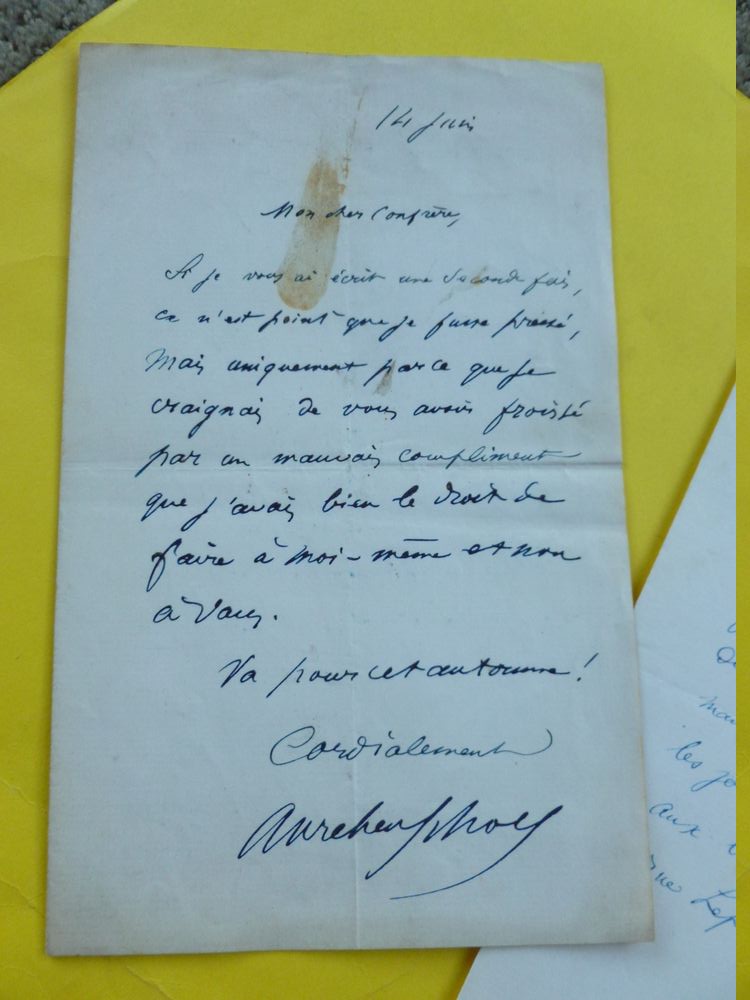 14 Juin
Mon cher Confrère,
Si je vous ai écrit une seconde fois,
ce n'est point que je fusse pressé,
Mais uniquement parce que je
craignais de vous avoir froissé
par un mauvais compliment
que j'avais bien le droit de
faire à moi-même et non
à Vous.
Va pour cet automne !
Cordialement
Aurélien Scholl
les
aux